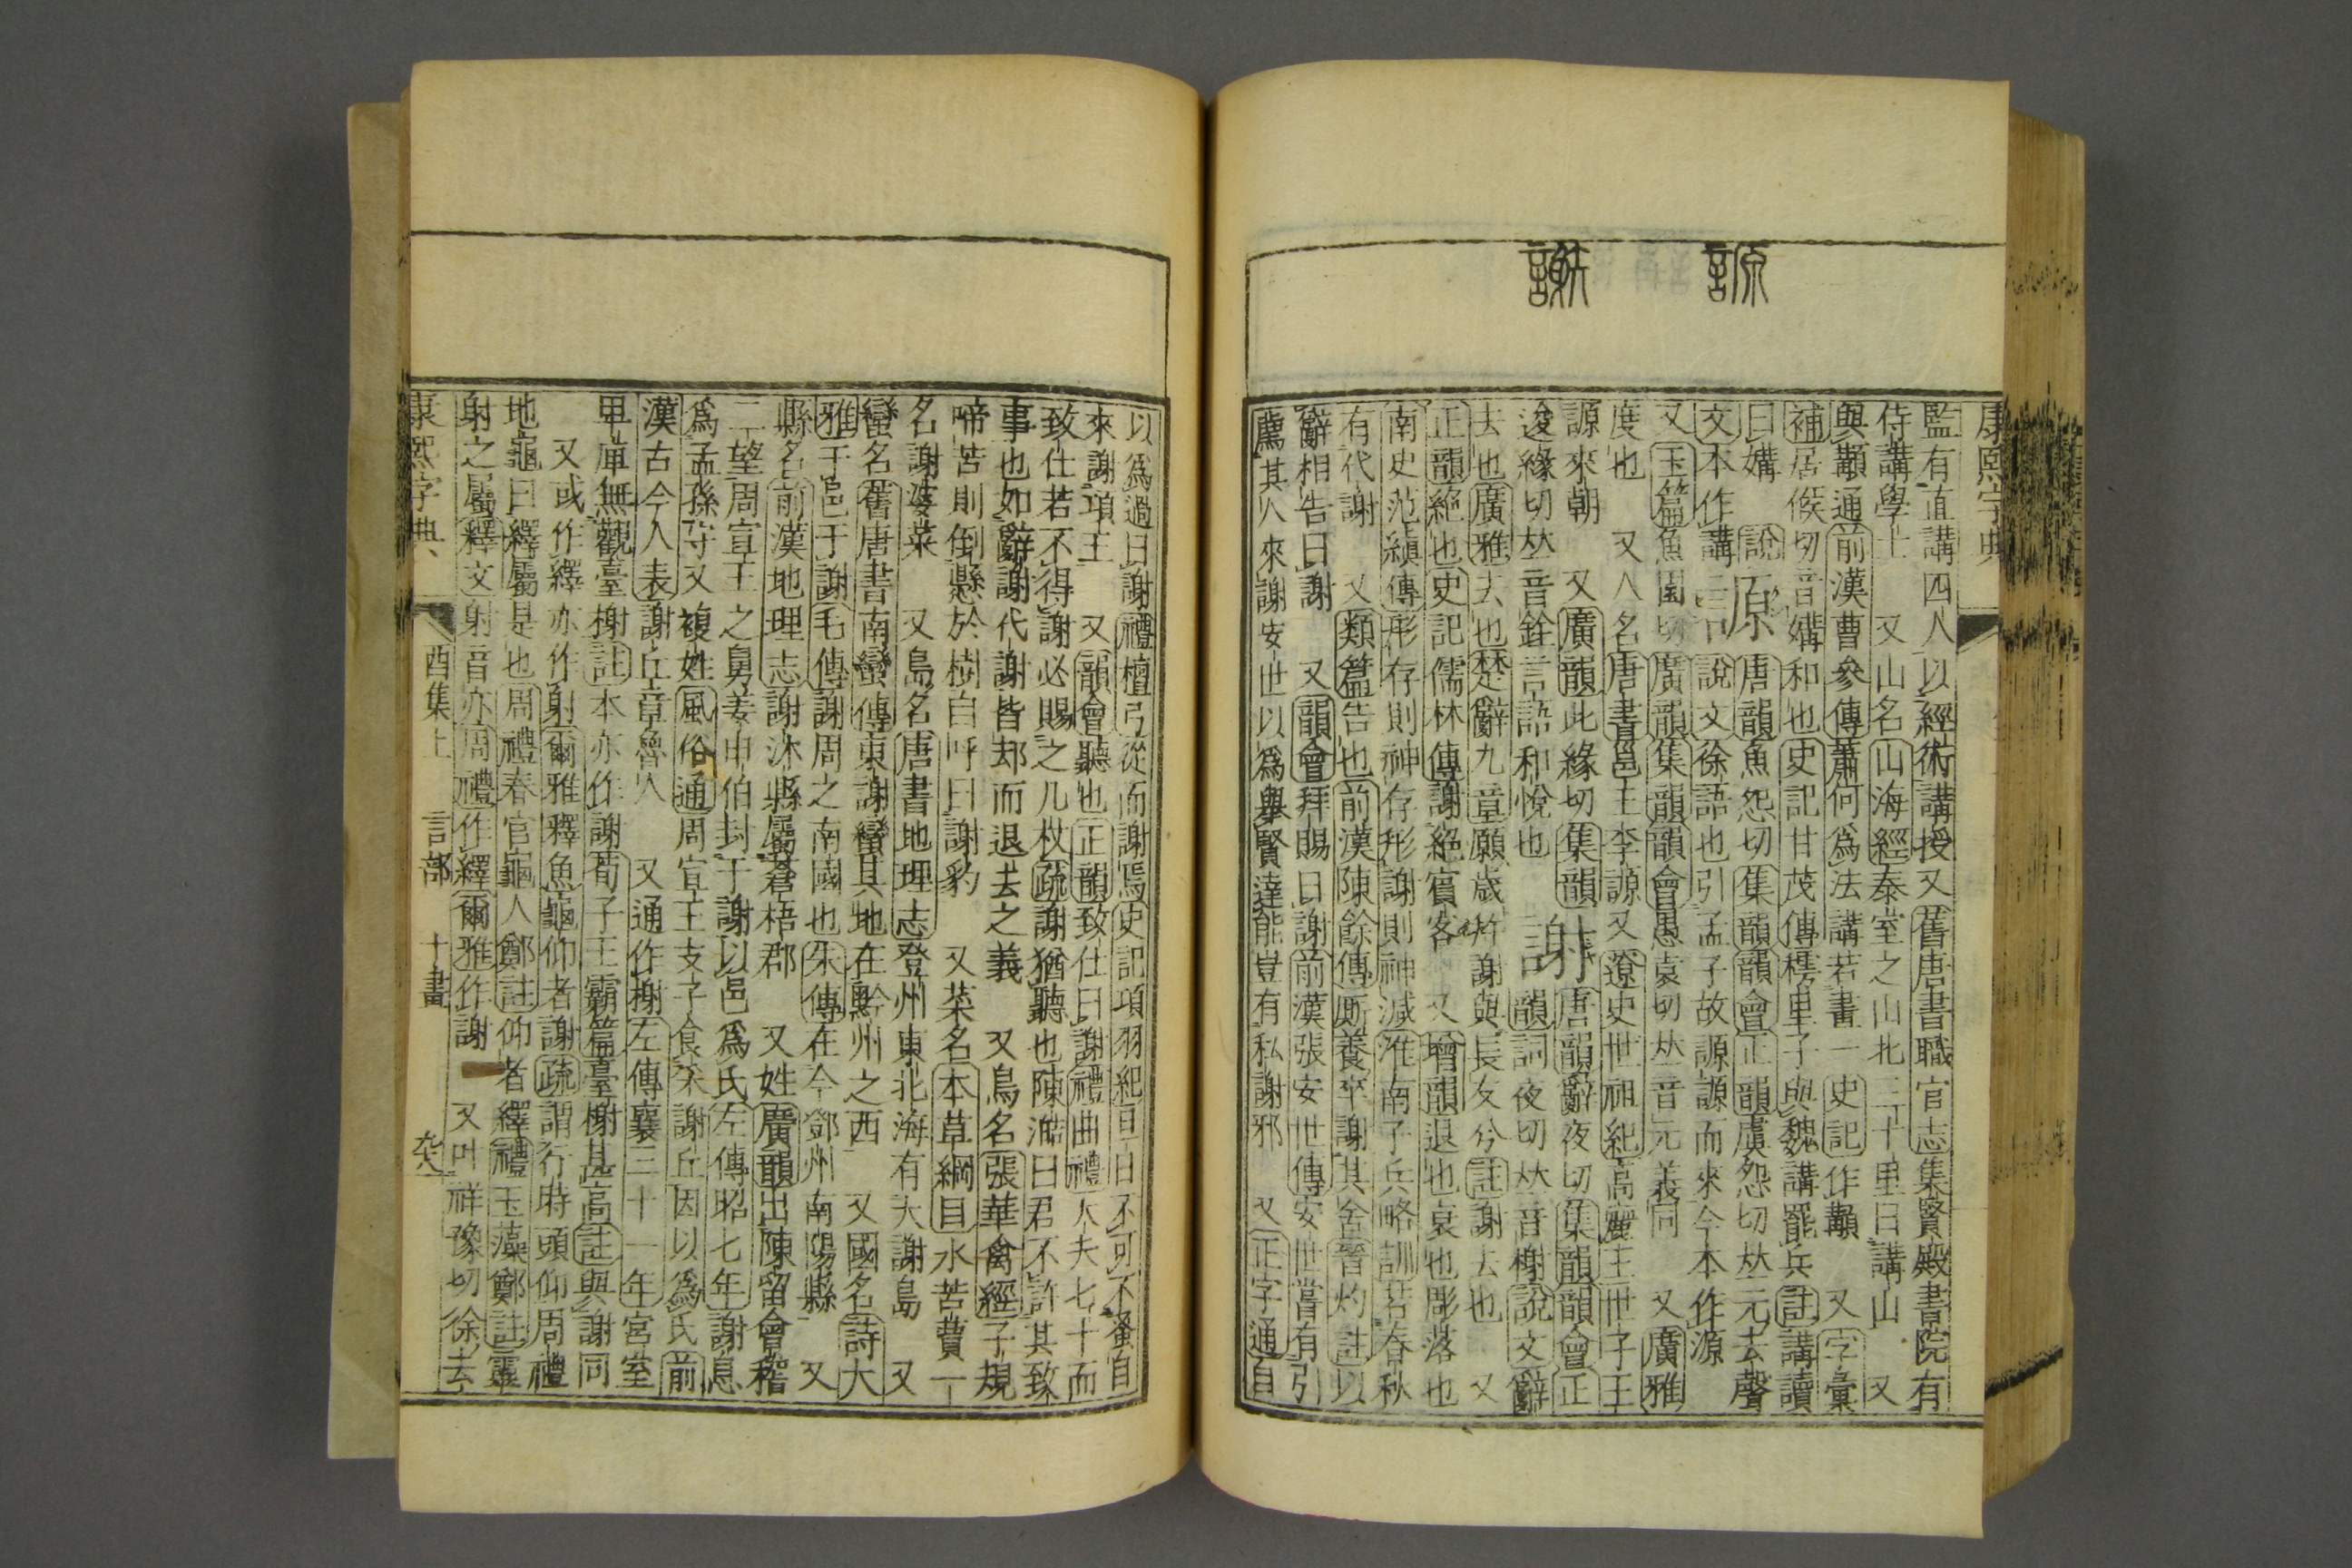 康熙字典
監有直講四人以經術講授又舊唐書職官志集賢殿書院有
侍講學士　又山名山海經泰室之山北三十里曰講山　又
與顜通前漢曹參傳蕭何爲法講若畫一史記作顜　又字彙
補居候切音媾和也史記甘茂傳樗里子與魏講罷兵註講讀
曰媾　說　謜唐韻魚怨切集韻韻會正韻虞怨切𠀤元去聲
文本作謜說文徐語也引孟子故謜謜而來今本作源
又玉篇魚園切廣韻集韻韻會愚袁切𠀤音元義同　又廣雅
度也　又人名唐書邕王李謜又遼史世祖紀高麗王世子王
謜來朝　又廣韻此緣切集韻
逡緣切𠀤音銓言語和悅也　謝唐韻辭夜切集韻韻會正
韻詞夜切𠀤音榭說文辭
去也廣雅去也楚辭九章願歲幷謝與長友兮註謝去也　又
正韻絕也史記儒林傳謝絕賓客　又增韻退也衰也彫落也
南史范縝傳形存則神存形謝則神滅淮南子兵略訓若春秋
有代謝　又類篇告也前漢陳餘傳廝養卒謝其舍晉灼註以
辭相告曰謝　又韻會拜賜曰謝前漢張安世傳安世嘗有引
薦其人來謝安世以爲舉賢達能豈有私謝邪　又正字通自
謜
謝
以爲過曰謝禮檀弓從而謝焉史記項羽紀旦日不可不蚤自
來謝項王　又韻會聽也正韻致仕曰謝禮曲禮大夫七十而
致仕若不得謝必賜之几杖疏謝猶聽也陳澔曰君不許其致
事也如辭謝代謝皆却而退去之義　又鳥名張華禽經子規
啼苦則倒懸於樹自呼曰謝豹　又菜名本草綱目水苦蕒一
名謝婆菜　又島名唐書地理志登州東北海有大謝島　又
蠻名舊唐書南蠻傳東謝蠻其地在黔州之西　又國名詩大
雅于邑于謝毛傳謝周之南國也朱傳在今鄧州南陽縣　又
縣名前漢地理志謝沐縣屬蒼梧郡　又姓廣韻出陳留會稽
二望周宣王之舅姜申伯封于謝以邑爲氏左傳昭七年謝息
爲孟孫守又複姓風俗通周宣王支子食采謝丘因以爲氏前
漢古今人表謝丘章魯人　又通作榭左傳襄三十一年宮室
卑庳無觀臺榭註本亦作謝荀子王霸篇臺榭甚高註與謝同
又或作繹亦作射爾雅釋魚龜仰者謝疏謂行時頭仰周禮
地龜曰繹屬是也周禮春官龜人鄭註仰者繹禮玉藻鄭註靈
射之屬釋文射音亦周禮作繹爾雅作謝　又叶祥豫切徐去
康熙字典　酉集上　言部　十畫